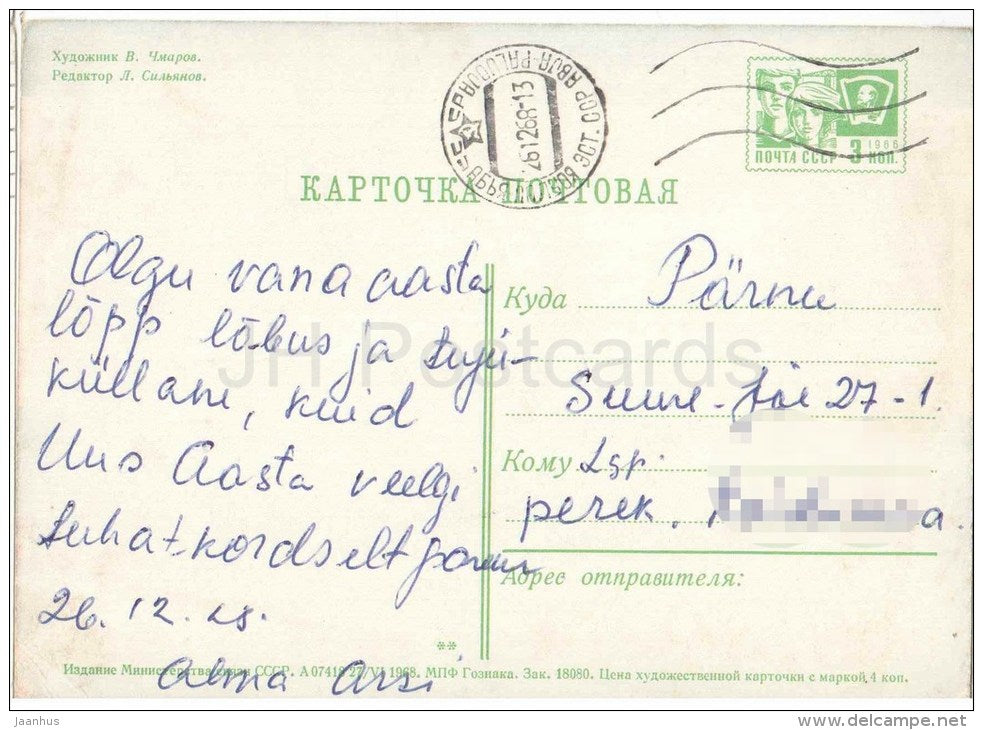 Художник В. Чмаров.
Редактор Л. Сильянов.
СССР ABJA PALUOJA
АБЬЯ ПАЛУОЯ ЭСТ. ССР
261268-13
1966
ПОЧТА СССР 3 КОП.
КАРТОЧКА ПОЧТОВАЯ
Olgu vana aasta
lõpp lõbus ja tuju-
küllane, kuid
Uus Aasta veelgi
tuhat kordselt parem
26. 12. 68.
Alma Arsi
Куда Pärnu
Suure-Jõe 27-1.
Кому Lgp.
perek.
Адрес отправителя:
**
Издание Министерства связи СССР. А 07418 27/VI 1968. МПФ Гознака. Зак. 18080. Цена художественной карточки с маркой 4 коп.
JH Postcards
jaanhus
www.delcampe.net